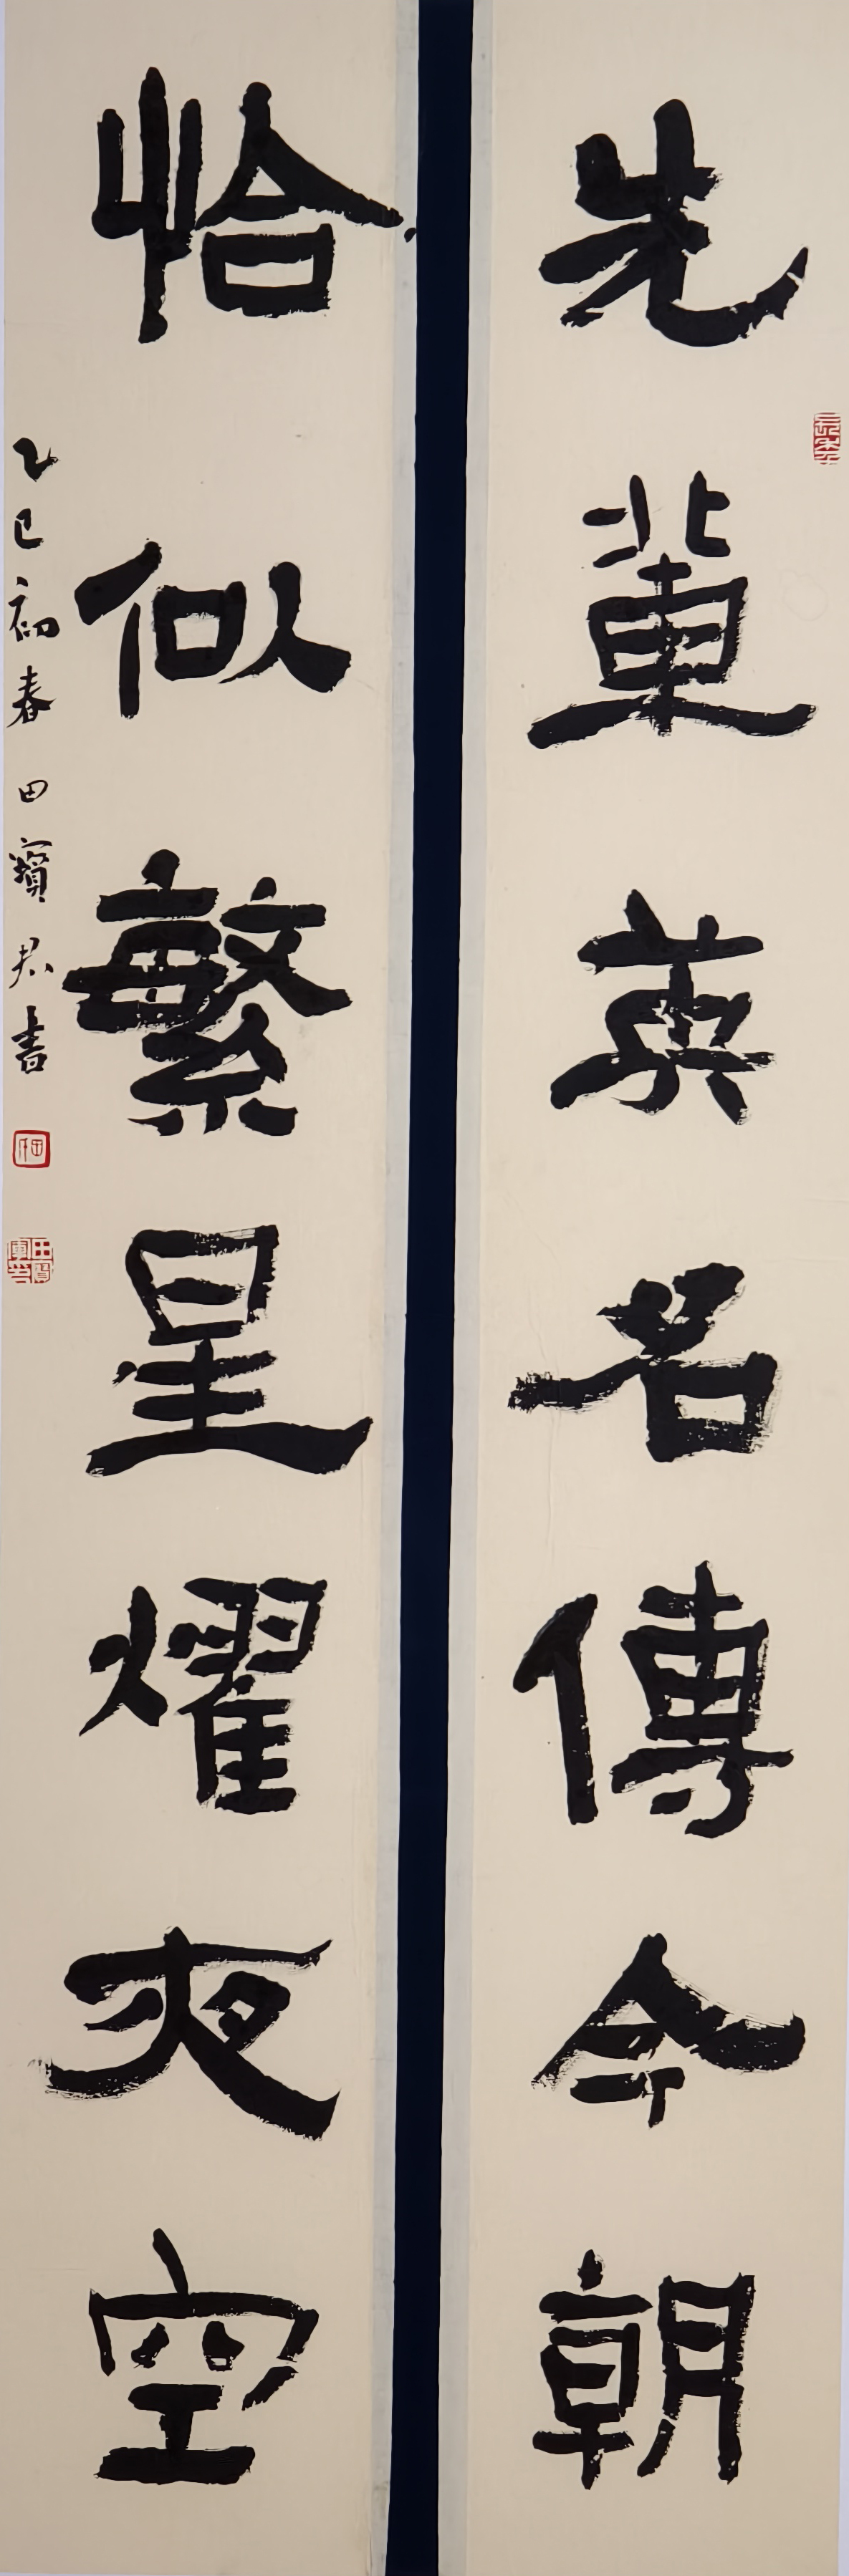 先輩英名傳今朝
恰似繁星耀夜空
乙巳初春田寶君書